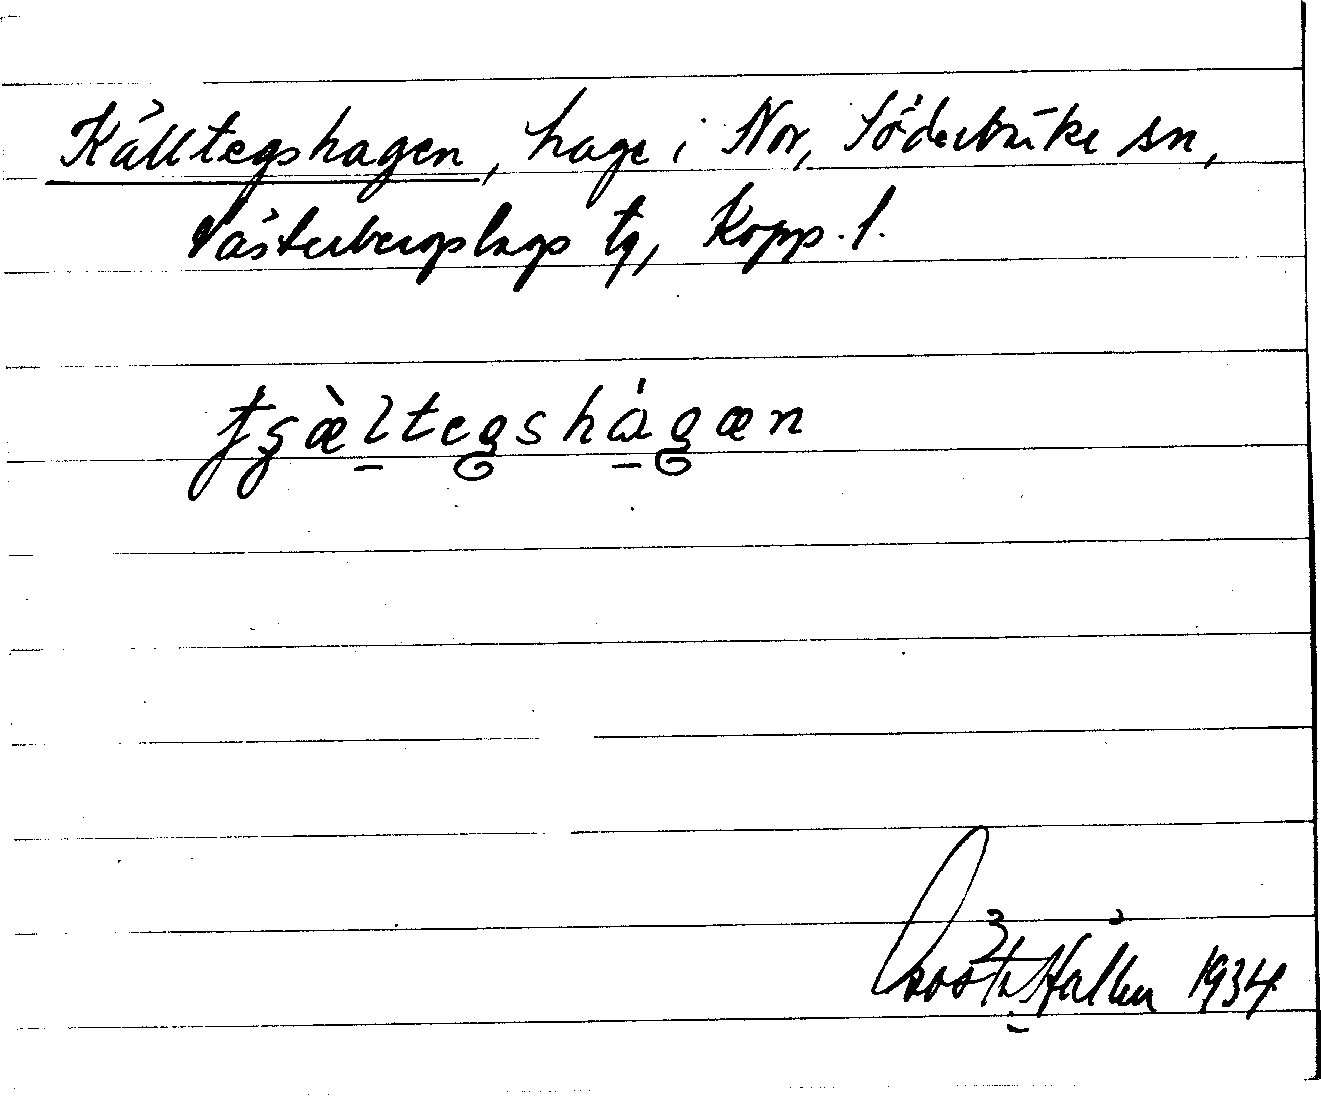 Källtegshagen, hage i Nor, Söderbärke sn,
Västerbergslags tg, Kopp. l.
tʃæ̀ltegshágæn
Gösta Hallén 1934